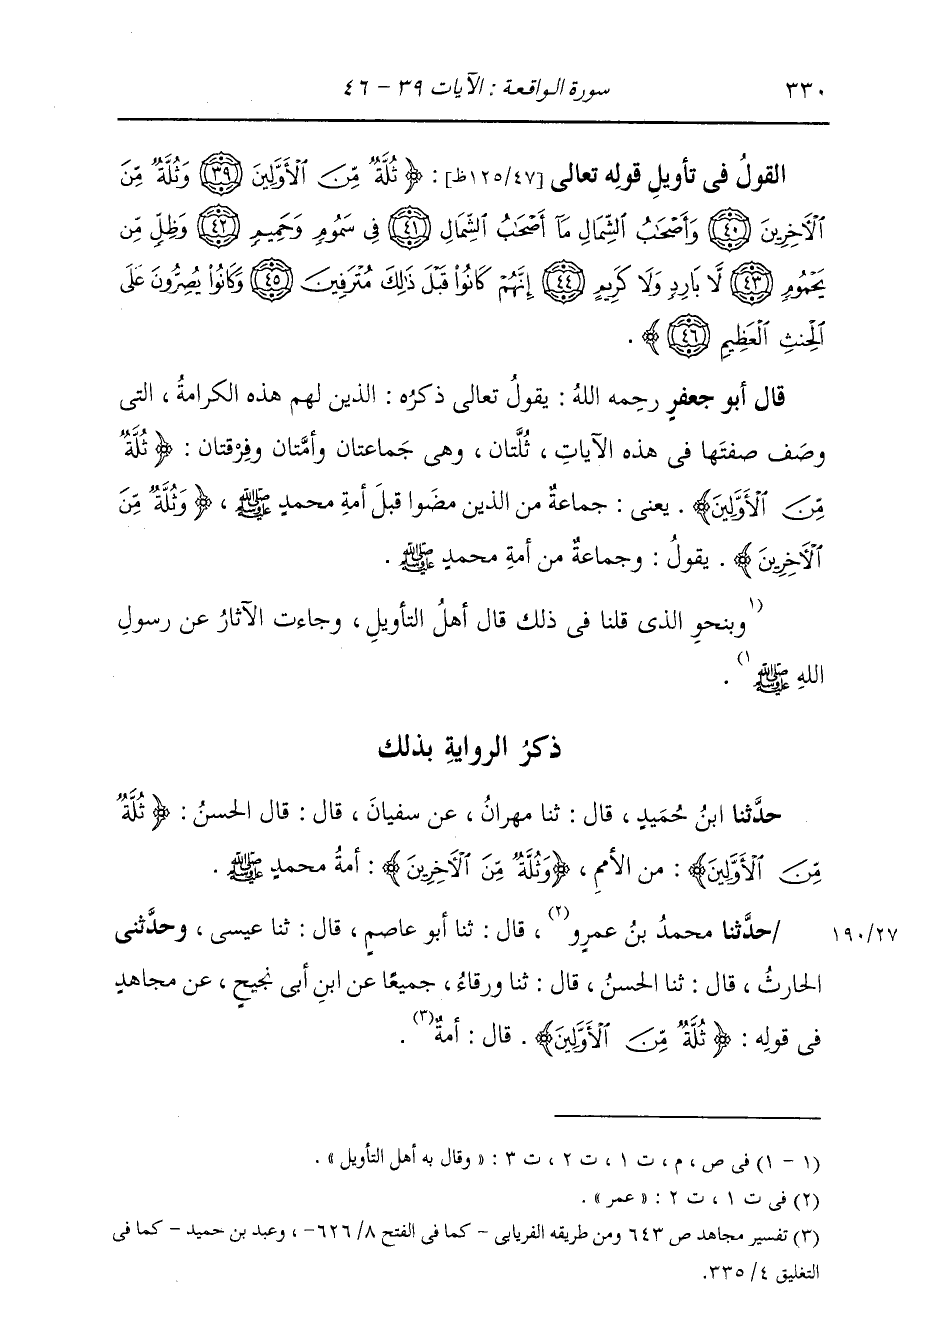 ٣٣٠ سورة الواقعة : الآيات ٣٩ - ٤٦
القولُ فى تأويلِ قولِه تعالى [٤٧/١٢٥ظ] : ﴿ ثُلَّةٌ مِّنَ ٱلْأَوَّلِينَ ﴿٣٩﴾ وَثُلَّةٌ مِّنَ
ٱلْآخِرِينَ ﴿٤٠﴾ وَأَصْحَٰبُ ٱلشِّمَالِ مَآ أَصْحَٰبُ ٱلشِّمَالِ ﴿٤١﴾ فِى سَمُومٍ وَحَمِيمٍ ﴿٤٢﴾ وَظِلٍّ مِّن
يَحْمُومٍ ﴿٤٣﴾ لَّا بَارِدٍ وَلَا كَرِيمٍ ﴿٤٤﴾ إِنَّهُمْ كَانُوا۟ قَبْلَ ذَٰلِكَ مُتْرَفِينَ ﴿٤٥﴾ وَكَانُوا۟ يُصِرُّونَ عَلَى
ٱلْحِنثِ ٱلْعَظِيمِ ﴿٤٦﴾ ﴾ .
قال أبو جعفرٍ رحِمه اللهُ : يقولُ تعالى ذكرُه : الذين لهم هذه الكرامةُ ، التى
وصَف صفتَها فى هذه الآياتِ ، ثُلَّتان ، وهى جَماعتان وأمَّتان وفِرْقتان : ﴿ ثُلَّةٌ
مِّنَ ٱلْأَوَّلِينَ﴾ . يعنى : جماعةٌ من الذين مضَوا قبلَ أمةِ محمدٍ ﷺ ، ﴿ وَثُلَّةٌ مِّنَ
ٱلْآخِرِينَ ﴾ . يقولُ : وجماعةٌ من أمةِ محمدٍ ﷺ .
(١وبنحوِ الذى قلنا فى ذلك قال أهلُ التأويلِ ، وجاءت الآثارُ عن رسولِ
اللهِ ﷺ١) .
ذكرُ الروايةِ بذلك
حدَّثنا ابنُ حُمَيدٍ ، قال : ثنا مهرانُ ، عن سفيانَ ، قال : قال الحسنُ : ﴿ ثُلَّةٌ
مِّنَ ٱلْأَوَّلِينَ﴾ : من الأممِ ، ﴿وَثُلَّةٌ مِّنَ ٱلْآخِرِينَ ﴾ : أمةُ محمدٍ ﷺ .
١٩٠/٢٧ /حدَّثنا محمدُ بنُ عمرٍو(٢) ، قال : ثنا أبو عاصمٍ ، قال : ثنا عيسى ، وحدَّثنى
الحارثُ ، قال : ثنا الحسنُ ، قال : ثنا ورقاءُ ، جميعًا عن ابنِ أبى نجيحٍ ، عن مجاهدٍ
فى قولِه : ﴿ ثُلَّةٌ مِّنَ ٱلْأَوَّلِينَ﴾ . قال : أمةٌ(٣) .
(١ - ١) فى ص ، م ، ت ١ ، ت ٢ ، ت ٣ : « وقال به أهل التأويل » .
(٢) فى ت ١ ، ت ٢ : « عمر » .
(٣) تفسير مجاهد ص ٦٤٣ ومن طريقه الفريابى - كما فى الفتح ٨/ ٦٢٦- ، وعبد بن حميد - كما فى
التغليق ٤/ ٣٣٥.